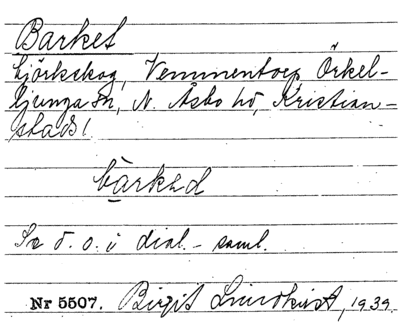 Barket
björkskog, Vemmentorp Örkel-
ljunga sn, N. Åsbo hd, Kristian-
stads l.
bàrkəd
Se d. o. i dial.-saml.
Nr 5507. Birgit Lundkvist, 1939.